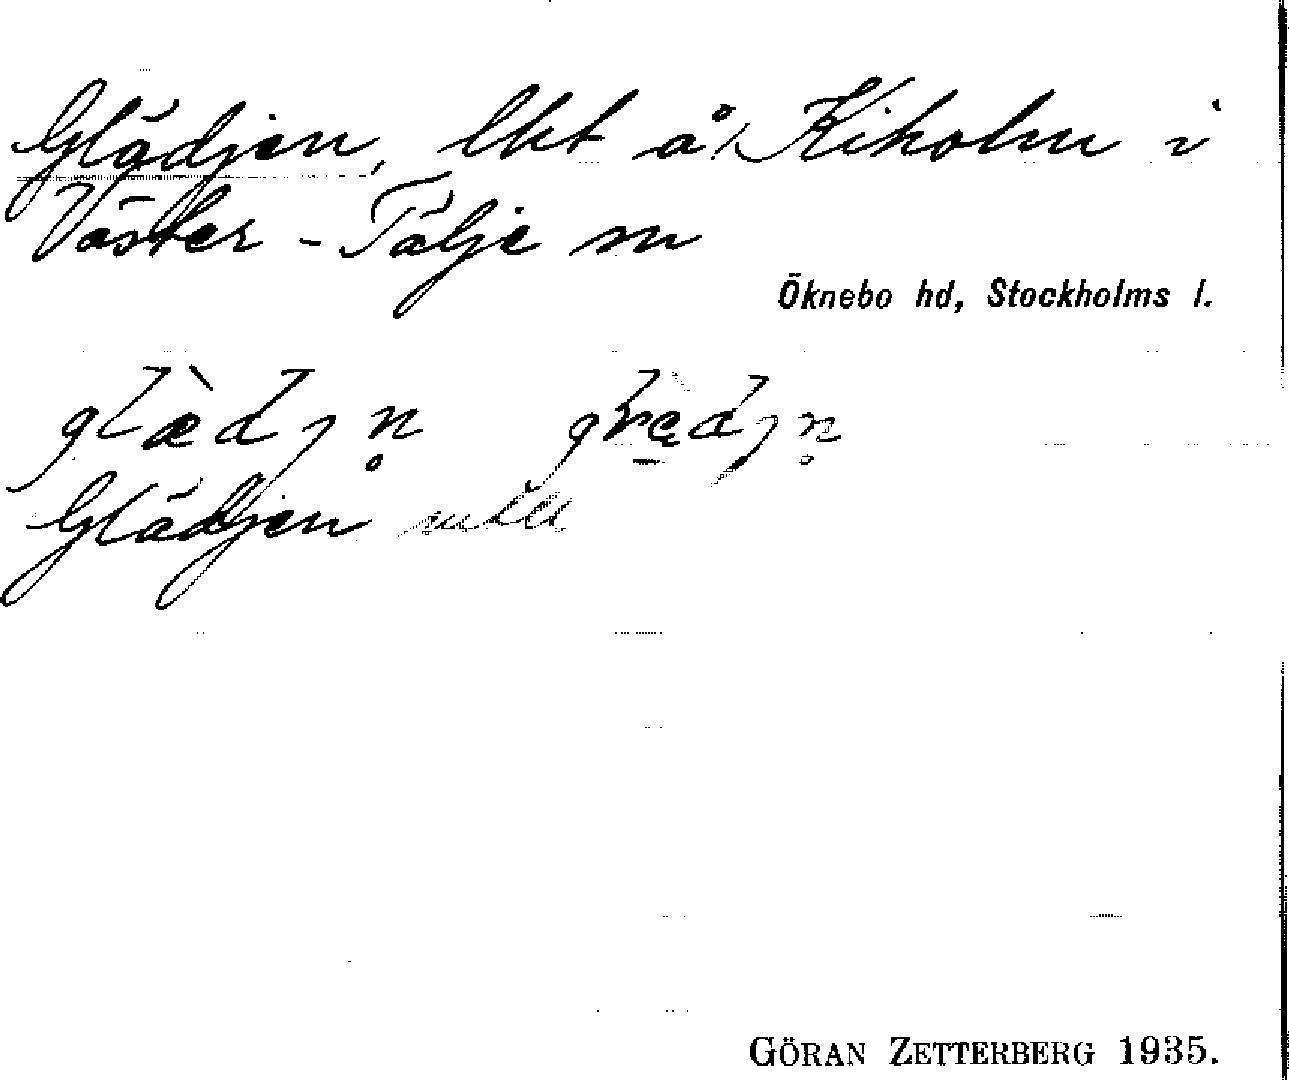 Glädjen, lht å Kiholm i
Väster-Tälje sn
Öknebo hd, Stockholms l.
Glädjen
GÖRAN ZETTERBERG 1935.